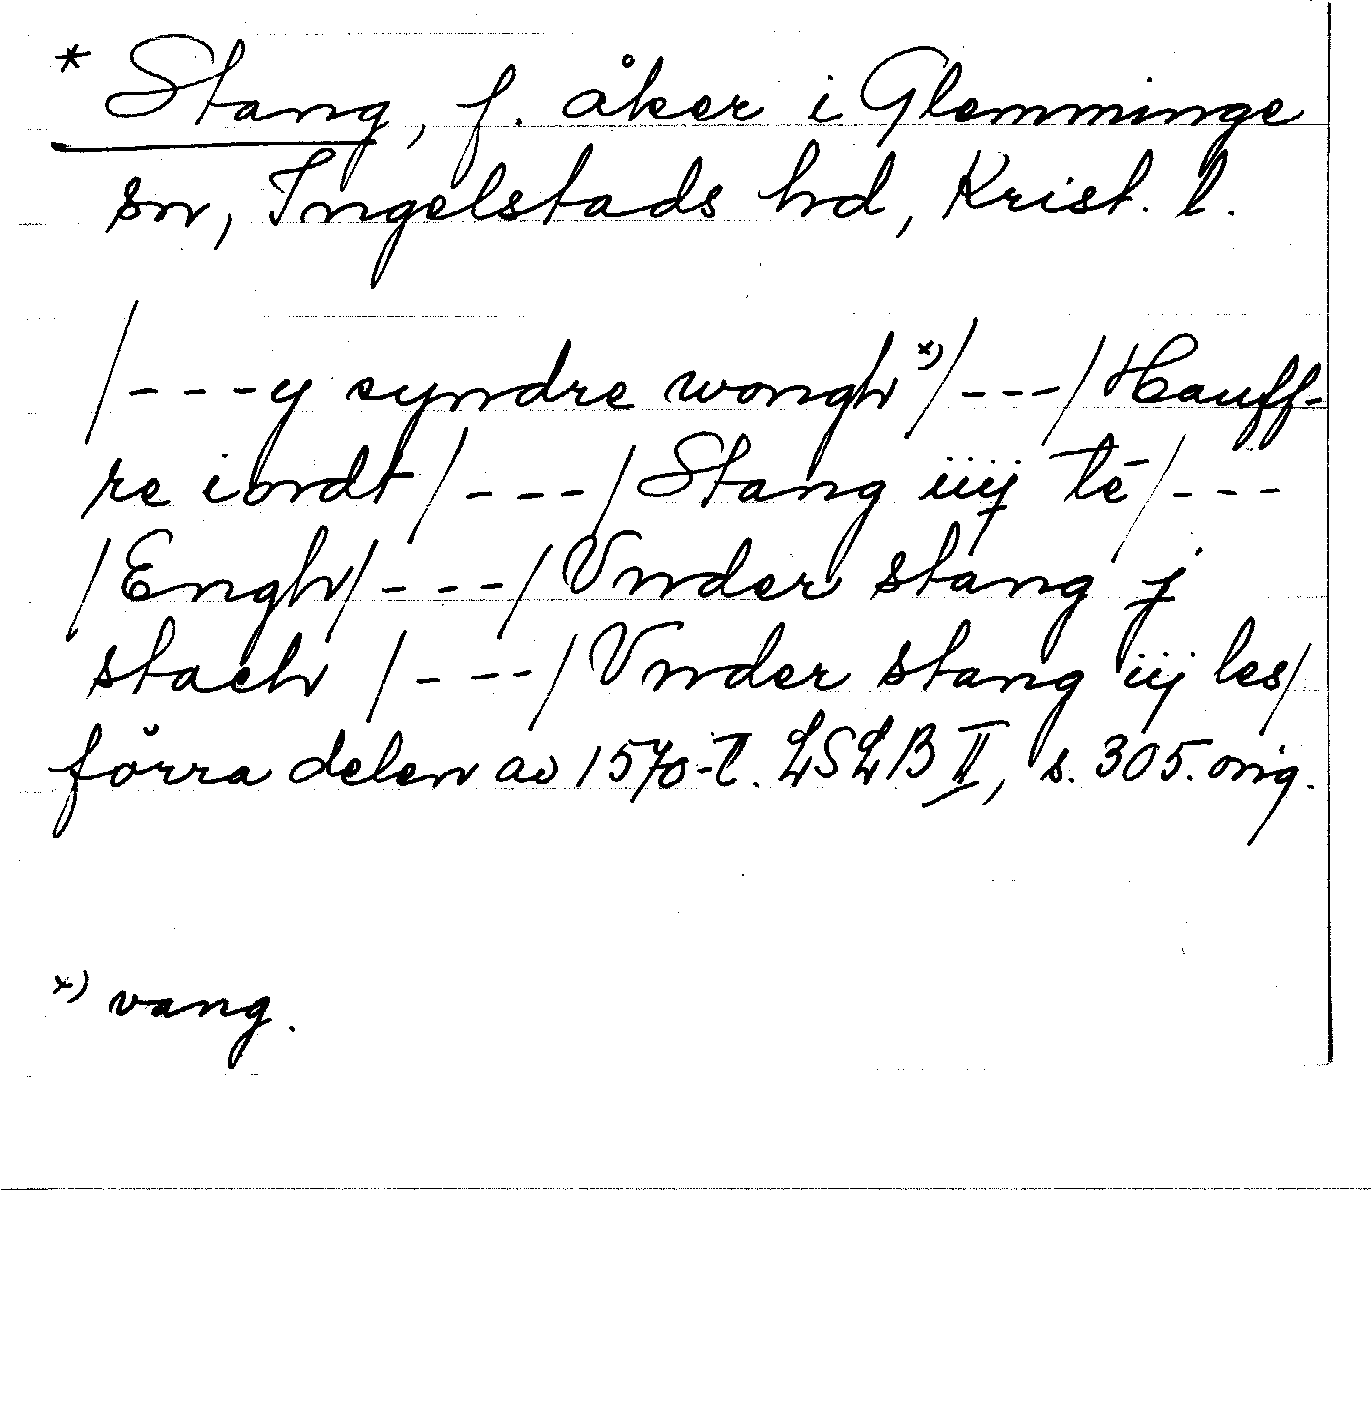 * Stang, f. åker i Glemminge
sn, Ingelstads hd, Krist. l.
/---y syndre wongh x)/---/Hauff-
re iordt/---/Stang iiij tē/---
/Engh/---/Vnder stang j
stach /---/Vnder stang iij les/
förra delen av 1570-t. LSLB II, s. 305. orig.
x) vang.